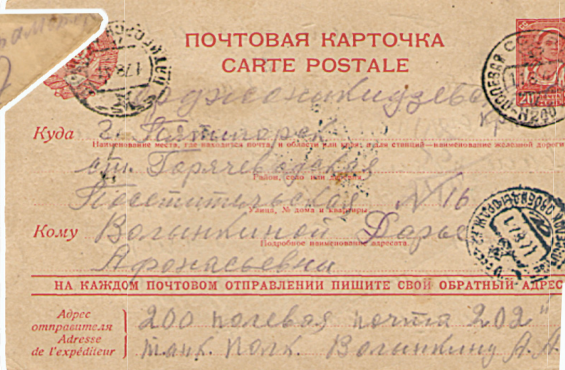 ПОЧТОВАЯ КАРТОЧКА
CARTE POSTALE
Орджоникидзевс
кр
Куда г. Пятигорск
Наименование места, где находится почта, и области или края, а для станций—наименование железной дороги
ст. Горячеводская
Район, село или деревня
Посетительская №16
Улица, № дома и квартиры
Кому Волынкиной Дарье
Подробное наименование адресата
Афонасьевни
НА КАЖДОМ ПОЧТОВОМ ОТПРАВЛЕНИИ ПИШИТЕ СВОЙ ОБРАТНЫЙ АДРЕС
Адрес отправителя
Adresse de l'expéditeur
200 полевая почта 202"
танк. Полк. Волынкину А. А.